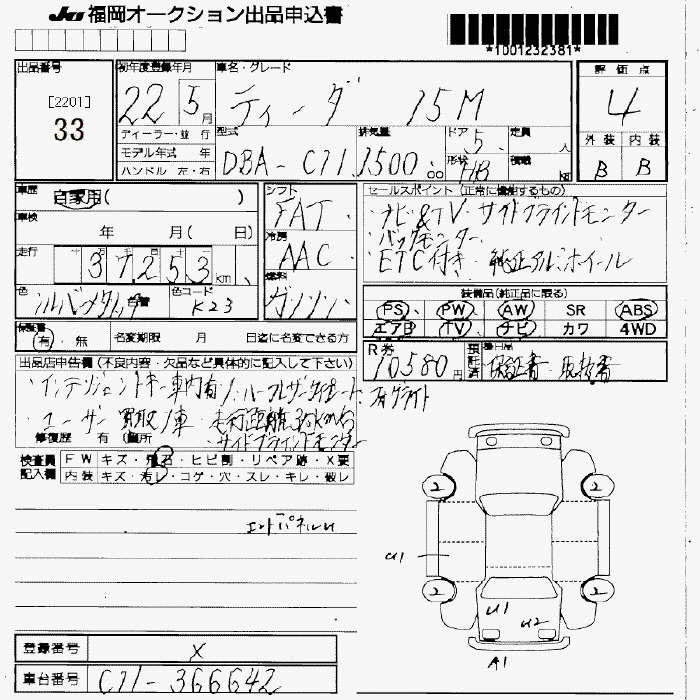 JU 福岡オークション出品申込書
*1001232381*
出品番号 初年度登録年月 車名・グレード 評価点
[2201]
33
22 5月 ティーダ 15M 4
ディーラー・並行 型式 排気量 ドア 定員 外装 内装
モデル年式 年 DBA-C11 1500cc 5 人 B B
ハンドル 左・右 形状 HB 積載 kg
車歴 自家用( ) シフト FAT セールスポイント (正常に機能するもの)
車検 年 月( 日) 冷房 AAC ナビ&TV・サイドブラインドモニター
走行 37,253km 燃料 ガソリン バックモニター
ETC付き 純正アルミホイール
色 シルバーメタリック 色替 色コード K23
装備品(純正品に限る)
PS PW AW SR ABS
エアB TV ナビ カワ 4WD
保証書 有・無 名変期限 月 日迄に名変できる方
R券 10580円 預託済 後日品 保証書 取扱書
出品店申告欄 (不良内容・欠品など具体的に記入して下さい)
インテリジェントキー車内有り ハーフレザー フォグライト
ユーザー買取り車 走行距離
サイドブラインドモニター
修復歴 有( )箇所
検査員 FW キズ・飛石・ヒビ割・リペア跡・X要
記入欄 内装 キズ・汚レ・コゲ・穴・スレ・キレ・破レ
エンドパネルU
2 2
U1
2 2
U1 U2
A1
登録番号 X
車台番号 C11-366642